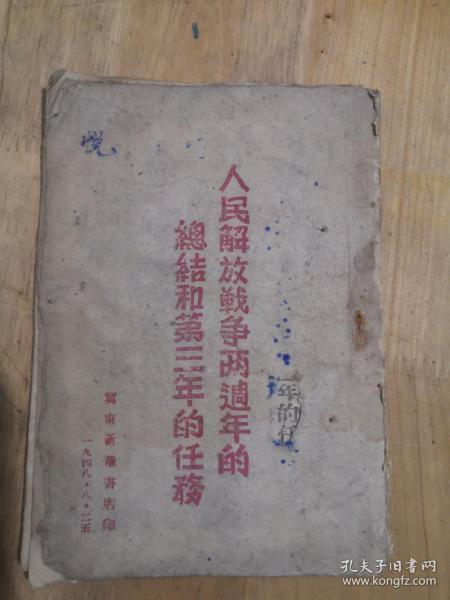 人民解放戰争两週年的
總結和第三年的任務
冀東新華書店印
一九四八·八·二五
悦
年的任
孔夫子旧书网
www.kongfz.com